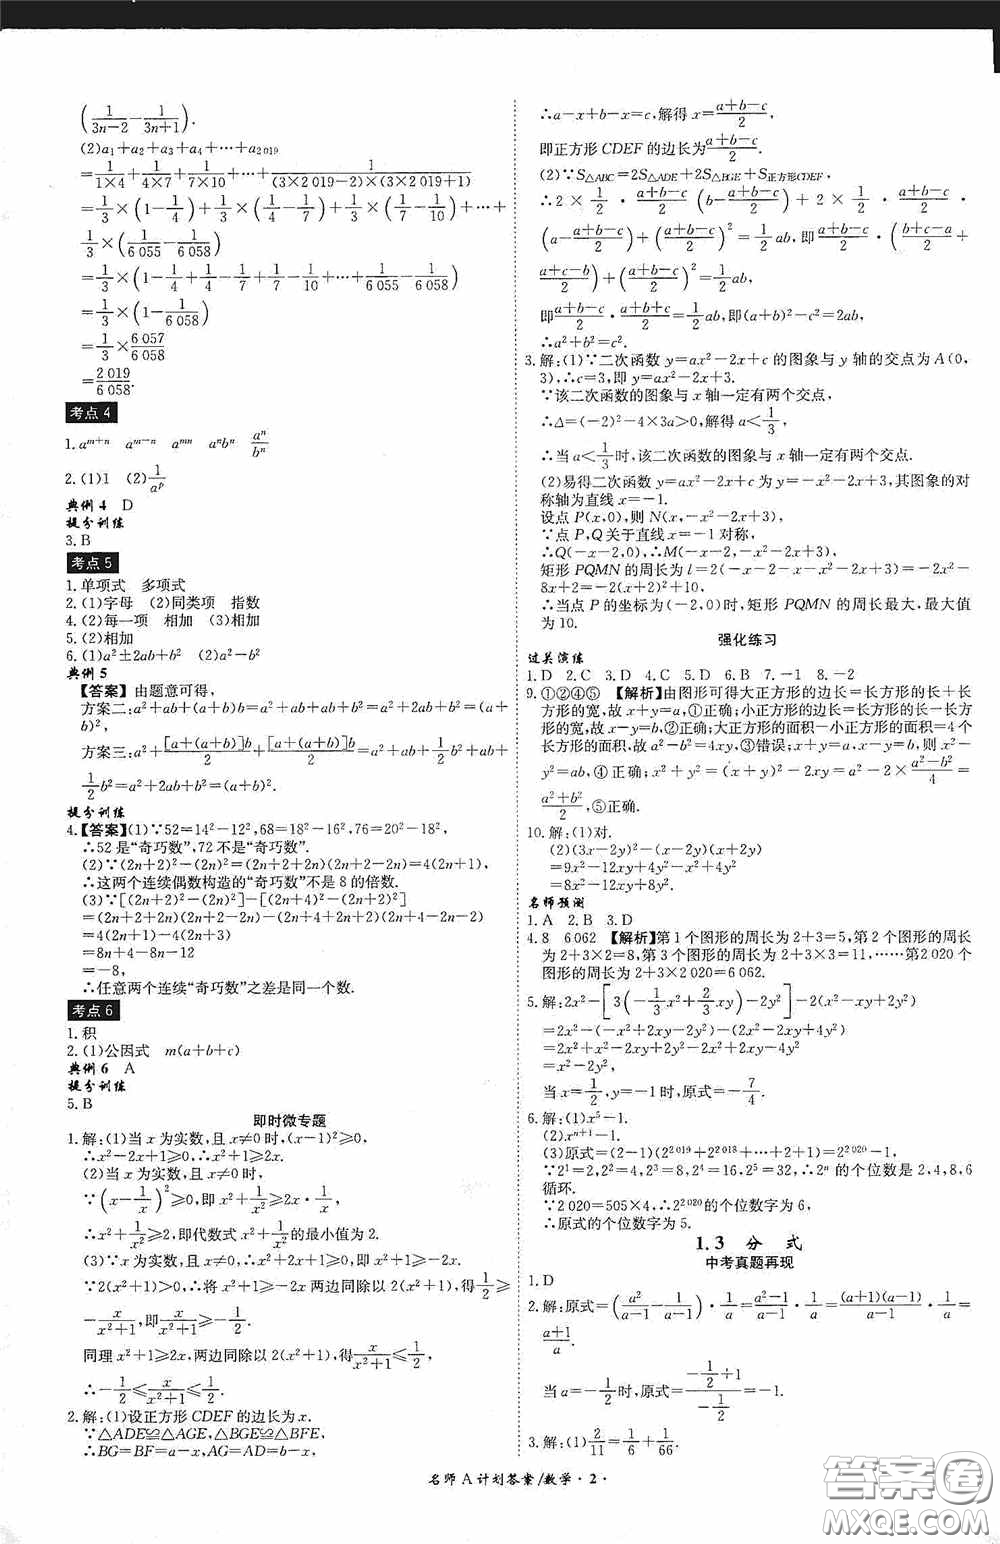 (1/(3n−2)−1/(3n+1)).
(2)a₁+a₂+a₃+a₄+⋯+a₂₀₁₉
=1/(1×4)+1/(4×7)+1/(7×10)+⋯+1/((3×2 019−2)×(3×2 019+1))
=1/3×(1−1/4)+1/3×(1/4−1/7)+1/3×(1/7−1/10)+⋯+
1/3×(1/6 055−1/6 058)
=1/3×(1−1/4+1/4−1/7+1/7−1/10+⋯+1/6 055−1/6 058)
=1/3×(1−1/6 058)
=1/3×6 057/6 058
=2 019/6 058.
考点 4
1.aᵐ⁺ⁿ aᵐ⁻ⁿ aᵐⁿ aⁿbⁿ aⁿ/bⁿ
2.(1)1 (2)1/aᵖ
典例 4 D
提分训练
3.B
考点 5
1.单项式 多项式
2.(1)字母 (2)同类项 指数
4.(2)每一项 相加 (3)相加
5.(2)相加
6.(1)a²±2ab+b² (2)a²−b²
典例 5
【答案】由题意可得,
方案二:a²+ab+(a+b)b=a²+ab+ab+b²=a²+2ab+b²=(a+
b)²,
方案三:a²+[a+(a+b)]b/2+[a+(a+b)]b/2=a²+ab+1/2b²+ab+
1/2b²=a²+2ab+b²=(a+b)².
提分训练
4.【答案】(1)∵52=14²−12²,68=18²−16²,76=20²−18²,
∴52 是“奇巧数”,72 不是“奇巧数”.
(2)∵(2n+2)²−(2n)²=(2n+2+2n)(2n+2−2n)=4(2n+1),
∴这两个连续偶数构造的“奇巧数”不是 8 的倍数.
(3)∵[(2n+2)²−(2n)²]−[(2n+4)²−(2n+2)²]
=(2n+2+2n)(2n+2−2n)−(2n+4+2n+2)(2n+4−2n−2)
=4(2n+1)−4(2n+3)
=8n+4−8n−12
=−8,
∴任意两个连续“奇巧数”之差是同一个数.
考点 6
1.积
2.(1)公因式 m(a+b+c)
典例 6 A
提分训练
5.B
即时微专题
1.解:(1)当 x 为实数,且 x≠0 时,(x−1)²⩾0,
∴x²−2x+1⩾0,∴x²+1⩾2x.
(2)当 x 为实数,且 x≠0 时,
∵(x−1/x)²⩾0,即 x²+1/x²⩾2x·1/x,
∴x²+1/x²⩾2,即代数式 x²+1/x² 的最小值为 2.
(3)∵x 为实数,且 x≠0,∴(x+1)²⩾0,∴x²+1⩾−2x.
∵2(x²+1)>0,∴将 x²+1⩾−2x 两边同除以 2(x²+1),得1/2⩾
−x/(x²+1),即x/(x²+1)⩾−1/2,
同理 x²+1⩾2x,两边同除以 2(x²+1),得x/(x²+1)⩽1/2,
∴−1/2⩽x/(x²+1)⩽1/2.
2.解:(1)设正方形 CDEF 的边长为 x.
∵△ADE≌△AGE,△BGE≌△BFE,
∴BG=BF=a−x,AG=AD=b−x,
∴a−x+b−x=c,解得 x=(a+b−c)/2,
即正方形 CDEF 的边长为(a+b−c)/2.
(2)∵S△ABC=2S△ADE+2S△BGE+S正方形CDEF,
∴2×1/2·(a+b−c)/2(b−(a+b−c)/2)+2×1/2·(a+b−c)/2·
(a−(a+b−c)/2)+((a+b−c)/2)²=1/2ab,即(a+b−c)/2·((b+c−a)/2+
(a+c−b)/2)+((a+b−c)/2)²=1/2ab,
即(a+b−c)/2·(a+b+c)/2=1/2ab,即(a+b)²−c²=2ab,
∴a²+b²=c².
3.解:(1)∵二次函数 y=ax²−2x+c 的图象与 y 轴的交点为 A(0,
3),∴c=3,即 y=ax²−2x+3.
∵该二次函数的图象与 x 轴一定有两个交点,
∴Δ=(−2)²−4×3a>0,解得 a<1/3,
∴当 a<1/3时,该二次函数的图象与 x 轴一定有两个交点.
(2)易得二次函数 y=ax²−2x+c 为 y=−x²−2x+3,其图象的对
称轴为直线 x=−1.
设点 P(x,0),则 N(x,−x²−2x+3),
∵点 P,Q 关于直线 x=−1 对称,
∴Q(−x−2,0),∴M(−x−2,−x²−2x+3),
矩形 PQMN 的周长为 l=2(−x−2−x−x²−2x+3)=−2x²−
8x+2=−2(x+2)²+10,
∴当点 P 的坐标为(−2,0)时,矩形 PQMN 的周长最大,最大值
为 10.
强化练习
过关演练
1.D 2.C 3.D 4.C 5.D 6.B 7.−1 8.−2
9.①②④⑤ 【解析】由图形可得大正方形的边长=长方形的长+长
方形的宽,故 x+y=a,①正确;小正方形的边长=长方形的长−长方
形的宽,故 x−y=b,②正确;大正方形的面积−小正方形的面积=4 个
长方形的面积,故 a²−b²=4xy,③错误;x+y=a,x−y=b,则 x²−
y²=ab,④正确;x²+y²=(x+y)²−2xy=a²−2×(a²−b²)/4=
(a²+b²)/2,⑤正确.
10.解:(1)对.
(2)(3x−2y)²−(x−2y)(x+2y)
=9x²−12xy+4y²−x²+4y²
=8x²−12xy+8y².
名师预测
1.A 2.B 3.D
4.8 6 062 【解析】第 1 个图形的周长为 2+3=5,第 2 个图形的周长
为 2+3×2=8,第 3 个图形的周长为 2+3×3=11,……第 2 020 个
图形的周长为 2+3×2 020=6 062.
5.解:2x²−[3(−1/3x²+2/3xy)−2y²]−2(x²−xy+2y²)
=2x²−(−x²+2xy−2y²)−(2x²−2xy+4y²)
=2x²+x²−2xy+2y²−2x²+2xy−4y²
=x²−2y²,
当 x=1/2,y=−1 时,原式=−7/4.
6.解:(1)x⁵−1.
(2)xⁿ⁺¹−1.
(3)原式=(2−1)(2²⁰¹⁹+2²⁰¹⁸+⋯+2+1)=2²⁰²⁰−1.
∵2¹=2,2²=4,2³=8,2⁴=16,2⁵=32,∴2ⁿ 的个位数是 2,4,8,6
循环.
∵2 020=505×4,∴2²⁰²⁰的个位数字为 6,
∴原式的个位数字为 5.
1.3 分 式
中考真题再现
1.D
2.解:原式=(a²/(a−1)−1/(a−1))·1/a=(a²−1)/(a−1)·1/a=(a+1)(a−1)/(a−1)·1/a=
(a+1)/a.
当 a=−1/2时,原式=(−1/2+1)/(−1/2)=−1.
3.解:(1)2/11=1/6+1/66.
名师 A 计划答案/数学·2·
答案圈
MXQE.COM